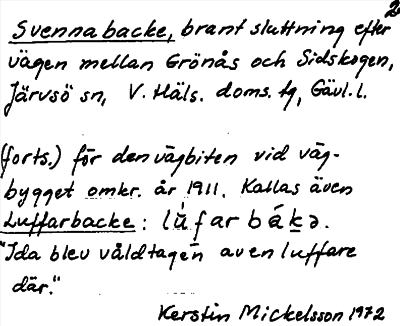 2
Svennabacke, brant sluttning efter
vägen mellan Grönås och Sidskogen,
Järvsö sn, V. Häls. doms. tg, Gävl. l.
(forts.) för den vägbiten vid väg-
bygget omkr. år 1911. Kallas även
Luffarbacke: lúfar bákə.
"Ida blev våldtagen av en luffare
där."
Kerstin Mickelsson 1972